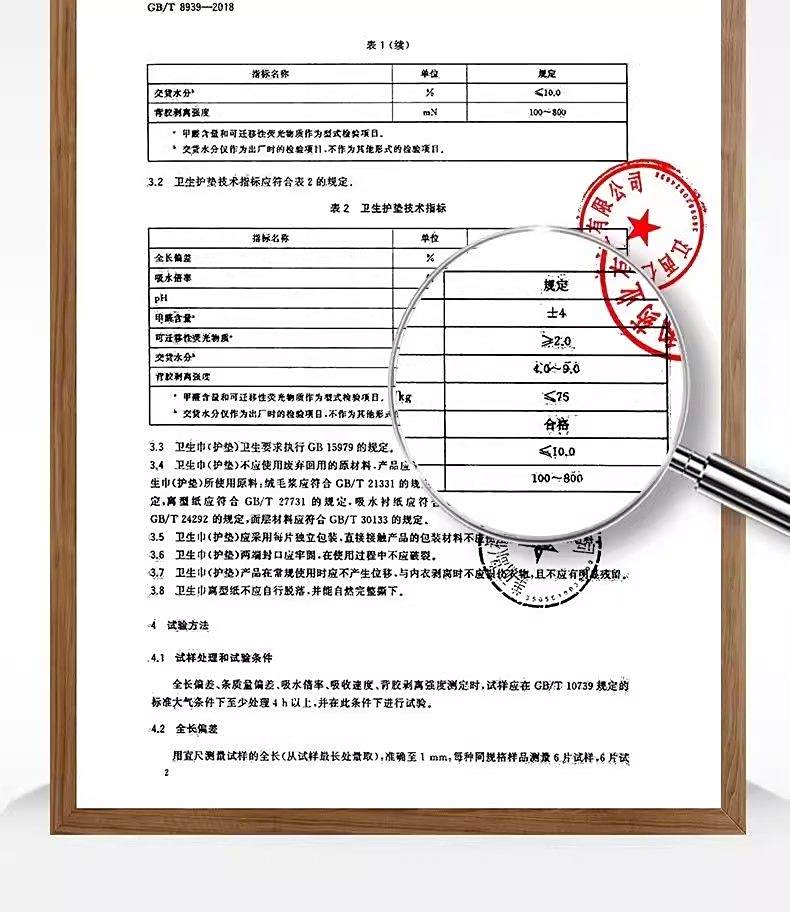 GB/T 8939—2018
表 1（续）
指标名称 单位 规定
交货水分ᵇ % ≤10.0
背胶剥离强度 mN 100～800
ᵃ 甲醛含量和可迁移性荧光物质作为型式检验项目。
ᵇ 交货水分仅作为出厂时的检验项目，不作为其他形式的检验项目。
3.2 卫生护垫技术指标应符合表 2 的规定。
表 2 卫生护垫技术指标
指标名称 单位 规定
全长偏差 % ±4
吸水倍率 ≥2.0
pH 4.0～9.0
甲醛含量ᵃ kg ≤75
可迁移性荧光物质ᵃ 合格
交货水分ᵇ ≤10.0
背胶剥离强度 100～800
ᵃ 甲醛含量和可迁移性荧光物质作为型式检验项目。
ᵇ 交货水分仅作为出厂时的检验项目，不作为其他形
3.3 卫生巾（护垫）卫生要求执行 GB 15979 的规定。
3.4 卫生巾（护垫）不应使用废弃回用的原材料，产品应
生巾（护垫）所使用原料：绒毛浆应符合 GB/T 21331 的规
定，离型纸应符合 GB/T 27731 的规定，吸水衬纸应符合
GB/T 24292 的规定，面层材料应符合 GB/T 30133 的规定。
3.5 卫生巾（护垫）应采用每片独立包装，直接接触产品的包装材料不
3.6 卫生巾（护垫）两端封口应牢固，在使用过程中不应破裂。
3.7 卫生巾（护垫）产品在常规使用时应不产生位移，与内衣剥离时不应损伤衣物，且不应有明显残留。
3.8 卫生巾离型纸不应自行脱落，并能自然完整撕下。
4 试验方法
4.1 试样处理和试验条件
全长偏差、条质量偏差、吸水倍率、吸收速度、背胶剥离强度测定时，试样应在 GB/T 10739 规定的
标准大气条件下至少处理 4 h 以上，并在此条件下进行试验。
4.2 全长偏差
用直尺测量试样的全长（从试样最长处量取），准确至 1 mm，每种同规格样品测量 6 片试样，6 片试
2
有限公司
江西
药业有